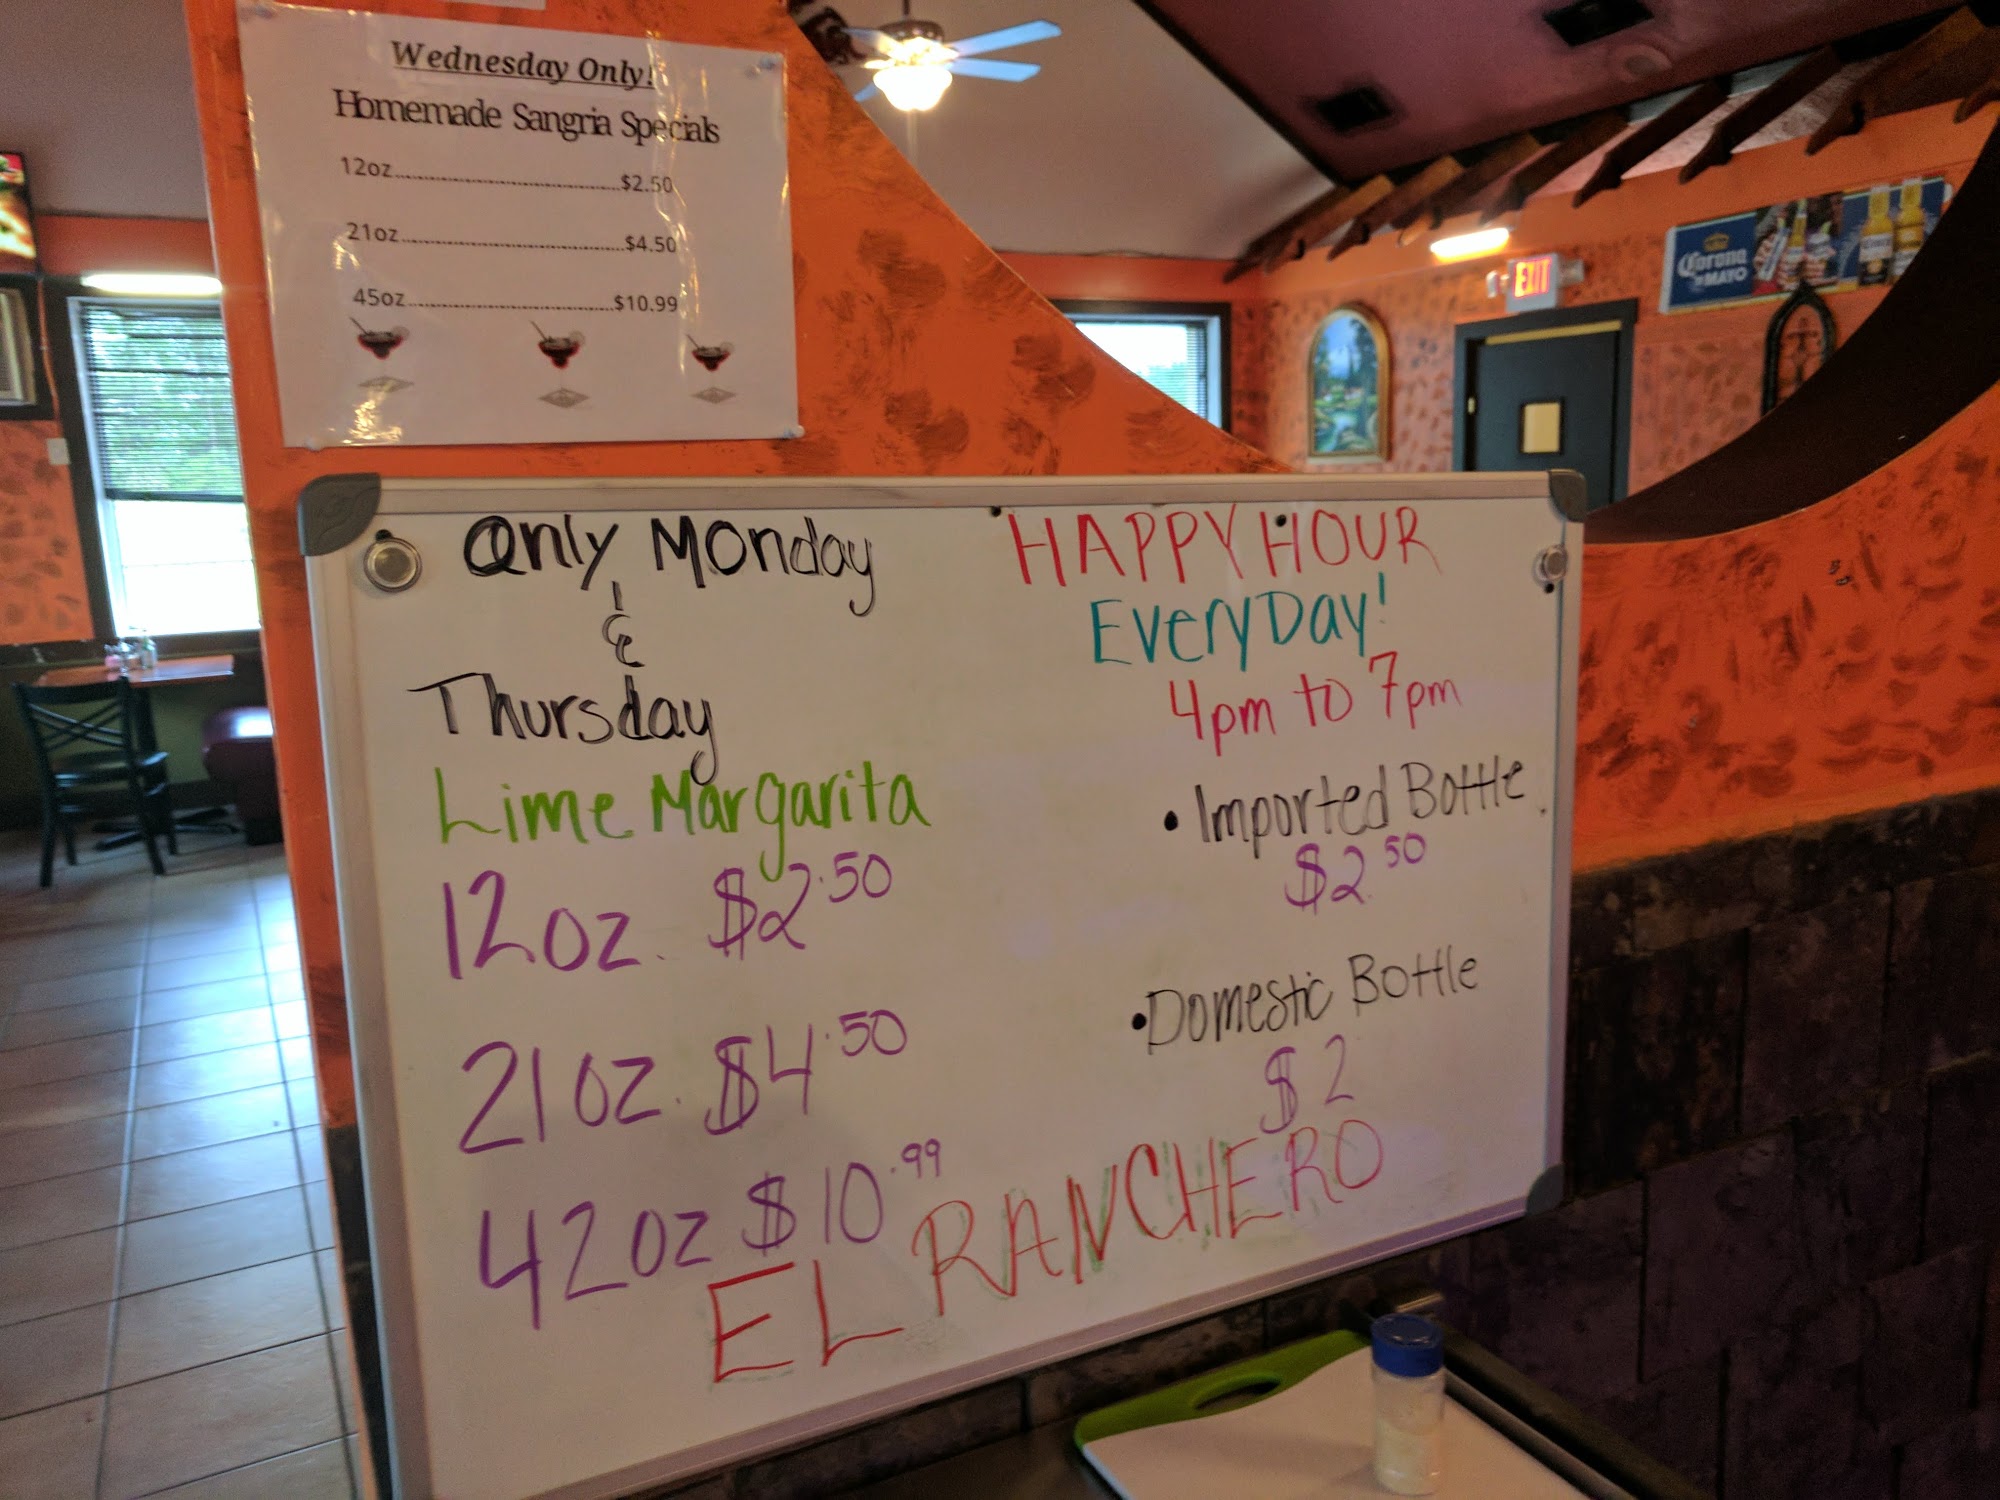 Wednesday Only!
Homemade Sangria Specials
12oz.......................................$2.50
21oz.......................................$4.50
45oz.......................................$10.99
Only Monday
&
Thursday
Lime Margarita
12oz. $2.50
21oz. $4.50
42oz $10.99
HAPPY HOUR
EveryDay!
4pm to 7pm
• Imported Bottle
$2.50
• Domestic Bottle
$2
EL RANCHERO
EXIT
Corona
de MAYO